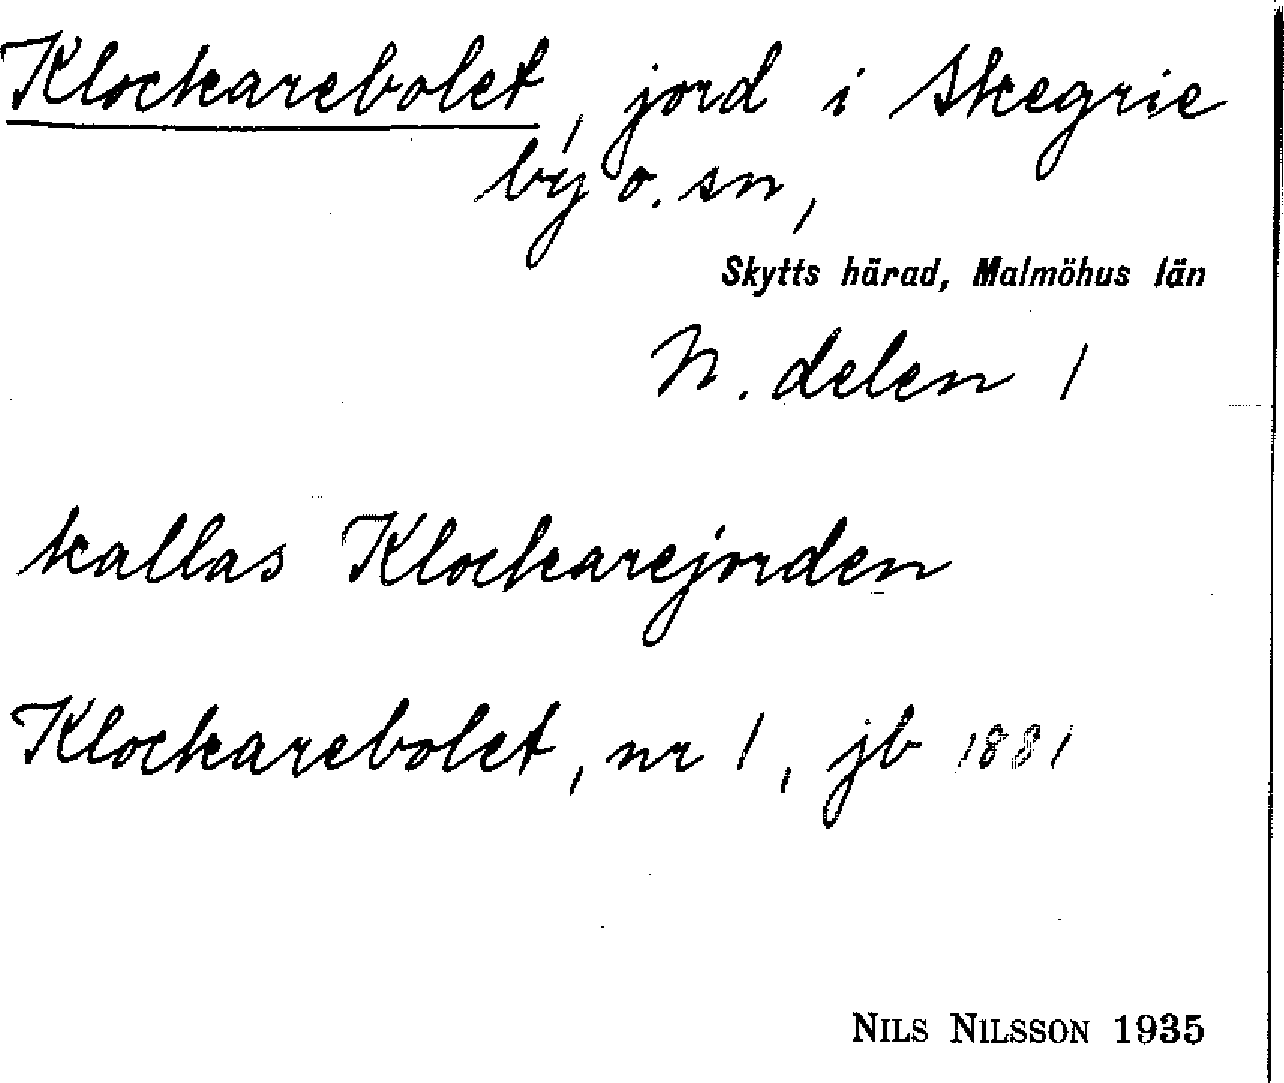 Klockarebolet, jord i Skegrie
by o. sn,
Skytts härad, Malmöhus län
N. delen 1
kallas Klockarejorden
Klockarebolet, nr 1, jb 1881
NILS NILSSON 1935